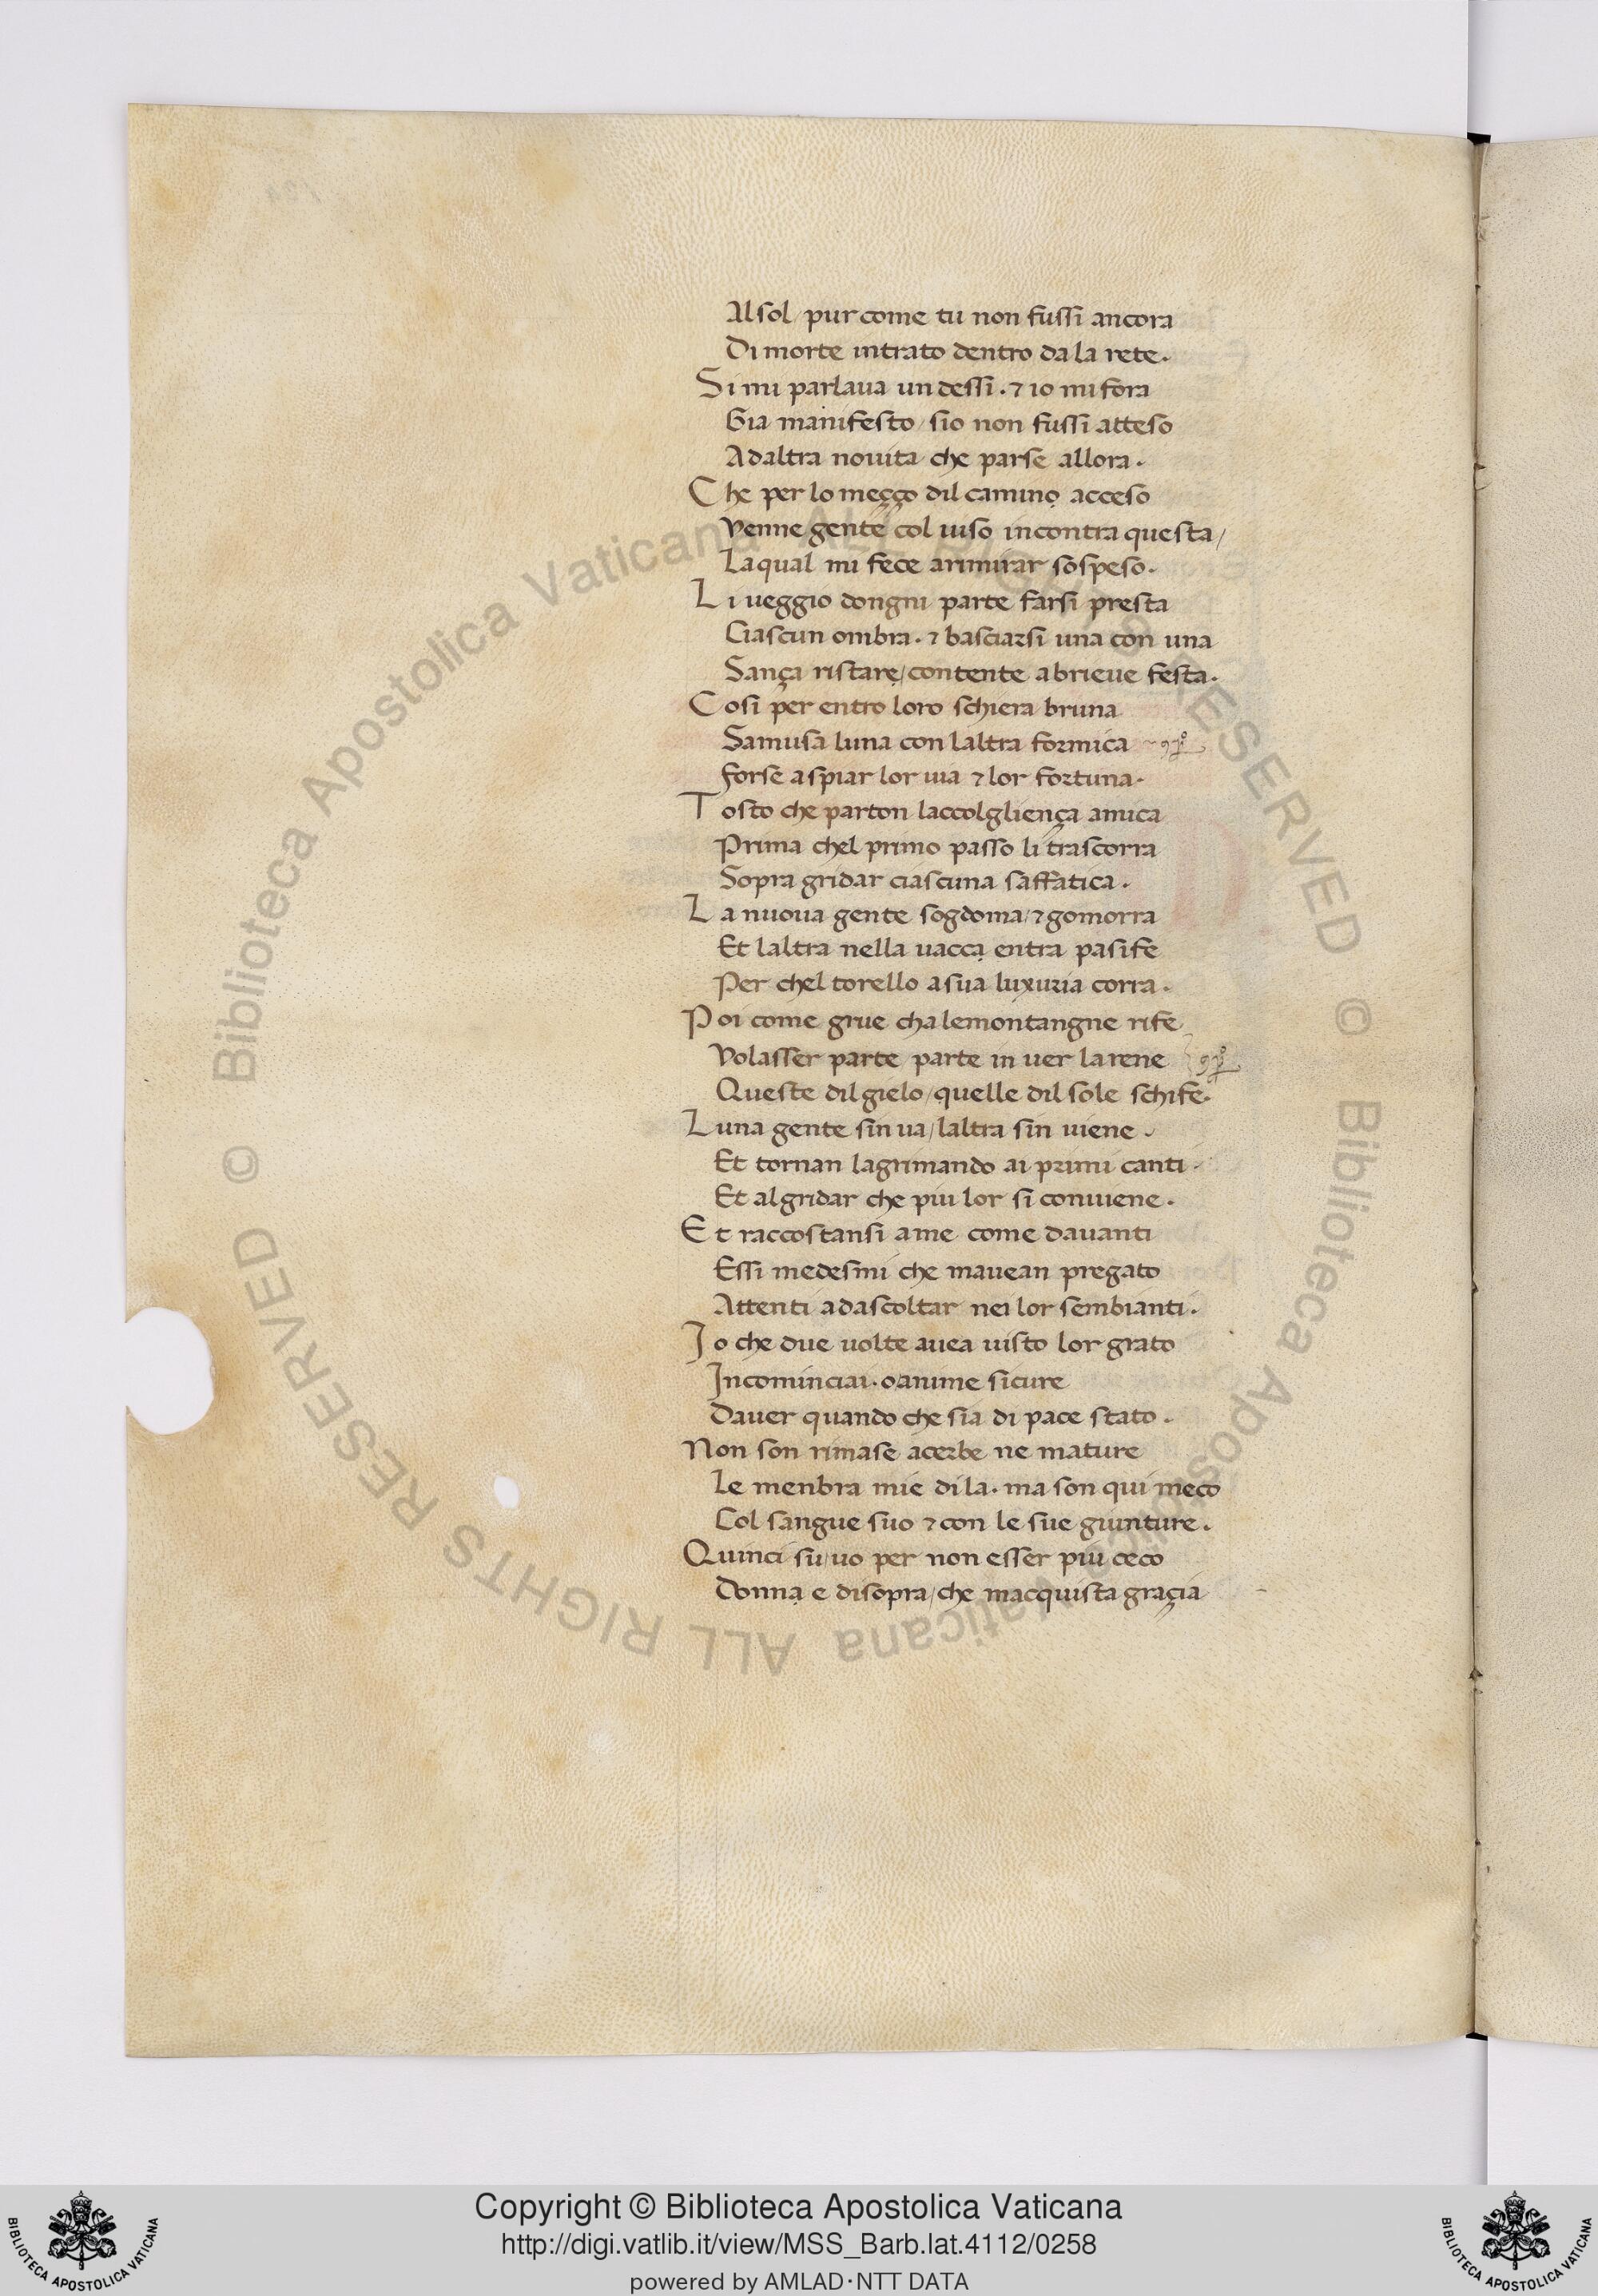 Al sol / pur come tu non fussi ancora
Di morte intrato dentro da la rete.
Si mi parlaua un dessi. ⁊ io mi fora
Gia manifesto / sio non fussi atteso
Ad altra nouita / che parse allora.
Che per lo meçço dil camino acceso
Venne gente col uiso incontra questa /
La qual mi fece a rimirar sospeso.
Li ueggio dongni parte farsi presta
Ciascun ombra. ⁊ basciarsi una con una
Sança ristare / contente a brieue festa.
Cosi per entro loro schiera bruna
Samusa luna con laltra formica
forse a spiar lor uia ⁊ lor fortuna.
Tosto che parton laccolgliença amica
Prima chel primo passo li trascorra
Sopra gridar ciascuna saffatica.
La nuoua gente sogdoma / ⁊ gomorra
Et laltra nella uacca entra pasife
Per chel torello a sua luxuria corra.
Poi come grue cha le montangne rife
Volasser parte parte in uer larene
Queste dil gielo / quelle dil sole schife.
Luna gente sin ua / laltra sin uiene.
Et tornan lagrimando ai primi canti.
Et al gridar che piu lor si conuiene.
Et raccostansi a me come dauanti
Essi medesmi che mauean pregato
Attenti ad ascoltar nei lor sembianti.
Io che due uolte auea uisto lor grato
Incominciai. o anime sicure
Dauer quando che sia di pace stato.
Non son rimase acerbe ne mature
Le menbra mie di la. ma son qui meco
Col sangue suo ⁊ con le sue giunture.
Quinci su uo per non esser piu ceco
Donna e di sopra / che macquista graçia
© Biblioteca Apostolica Vaticana ALL RIGHTS RESERVED © Biblioteca Apostolica Vaticana ALL RIGHTS RESERVED
Copyright © Biblioteca Apostolica Vaticana
http://digi.vatlib.it/view/MSS_Barb.lat.4112/0258
powered by AMLAD·NTT DATA
BIBLIOTECA APOSTOLICA VATICANA
BIBLIOTECA APOSTOLICA VATICANA